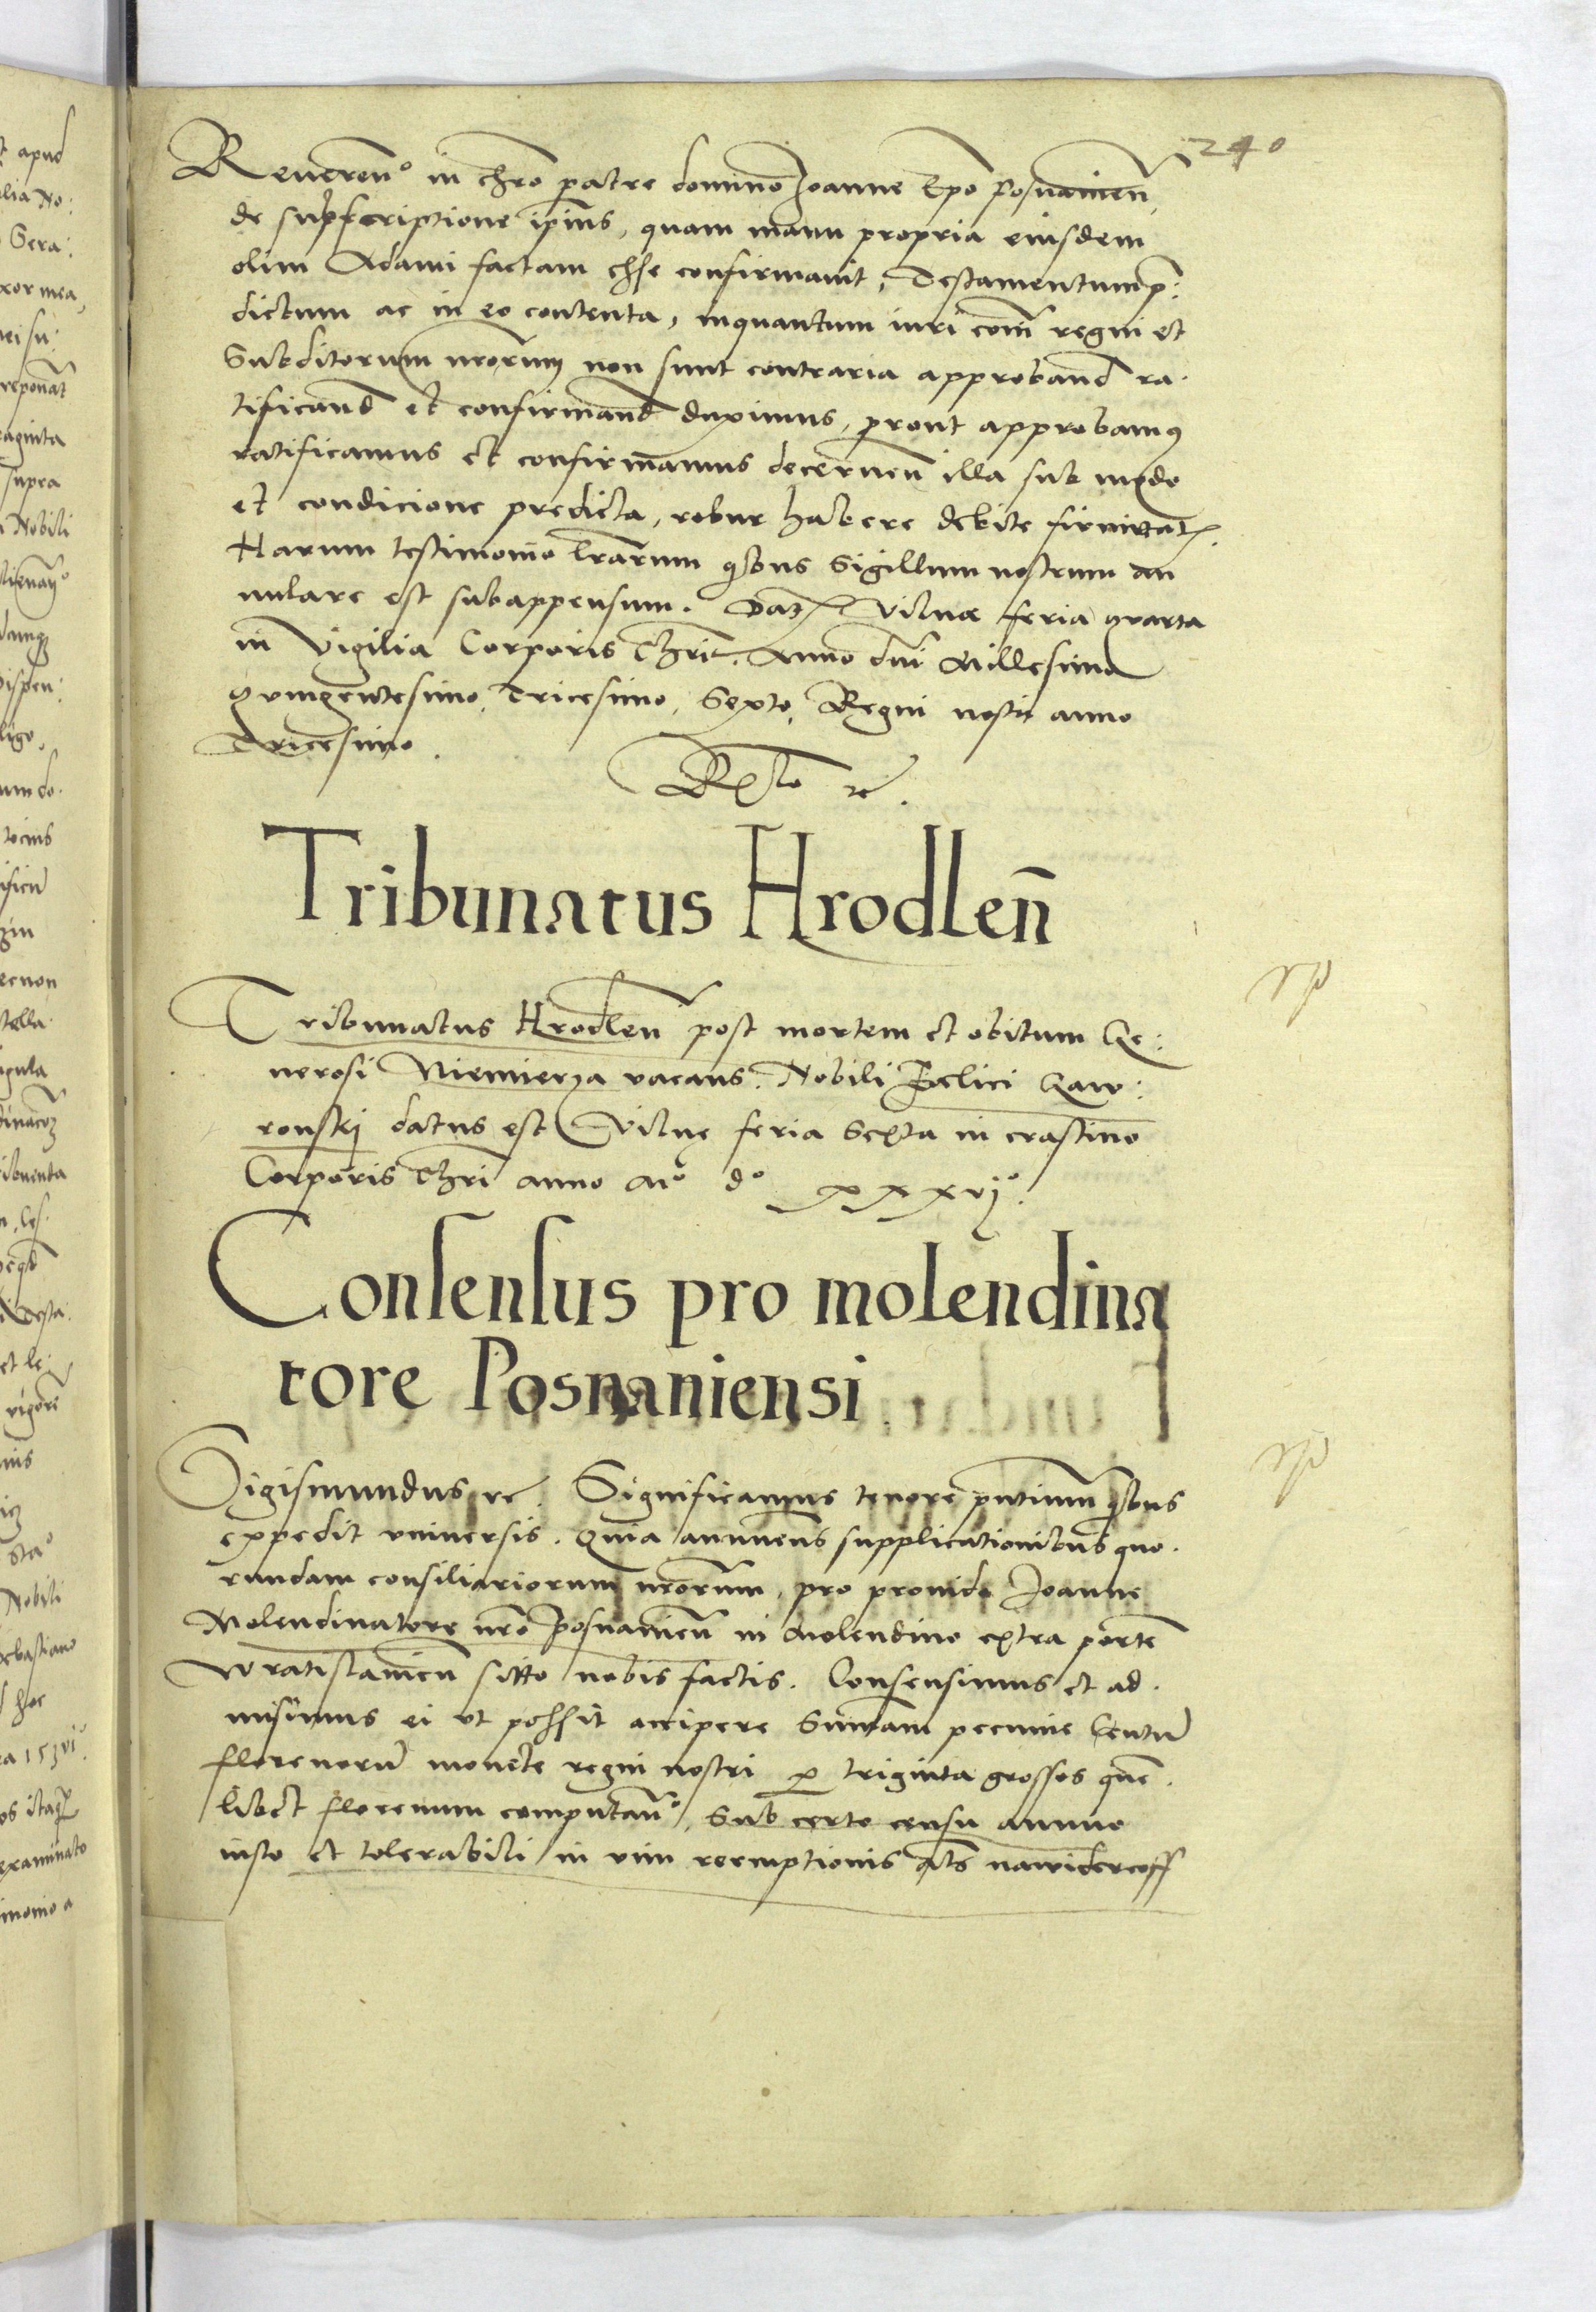 240
Reueren° in chro patre domino Joanne Epo Posnanien
de subscriptione ipius, quam manu propria eiusdem
olim Adami factam esse confirmauit, Testamentum p:
dictum ac in eo contenta, inquantum iuri comi regni et
Subditorum nrorum non sunt contraria approband ra-
tificand et confirmand duximus, prout approbamus
ratificamus et confirmamus decernen illa sub modo
et condicione predicta, robur habere debite firmitatis.
Harum testimonio lrarum quibus Sigillum nostrum an
nulare est subappensum. Dat Vilnae feria quarta
in Vigilia Corporis Chri. Anno dni Millesimo
Quingentesimo, Tricesimo, Sexto, Regni nostri anno
Tricesimo.
Rto rc.
Tribunatus Hrodlen
Tribunatus Hrodlen post mortem et obitum Ge:
nerosi Niemierza vacans. Nobili Felici Gaw:
ronskij datus est Vilnę feria Sexta in crastino
Corporis Chri anno M° d° xxxvj°.
Consensus pro molendina
tore Posnaniensi
Sigismundus rc. Significamus tenore pntium quibus
expedit vniuersis. Quia annuens supplicationibus quo-
rundam consiliariorum nrorum, pro prouido Joanne
Molendinatore nro Posnanien in Molendino extra portem
Wratislauien sitto nobis factis. Consensimus et ad-
misimus ei vt possit accipere Summam pecunie Centum
florenorum monete regni nostri per triginta grossos quem-
libet florenum computan°, Sub certo censu annuo
iusto et tolerabili in vim reemptionis als nawidercoff